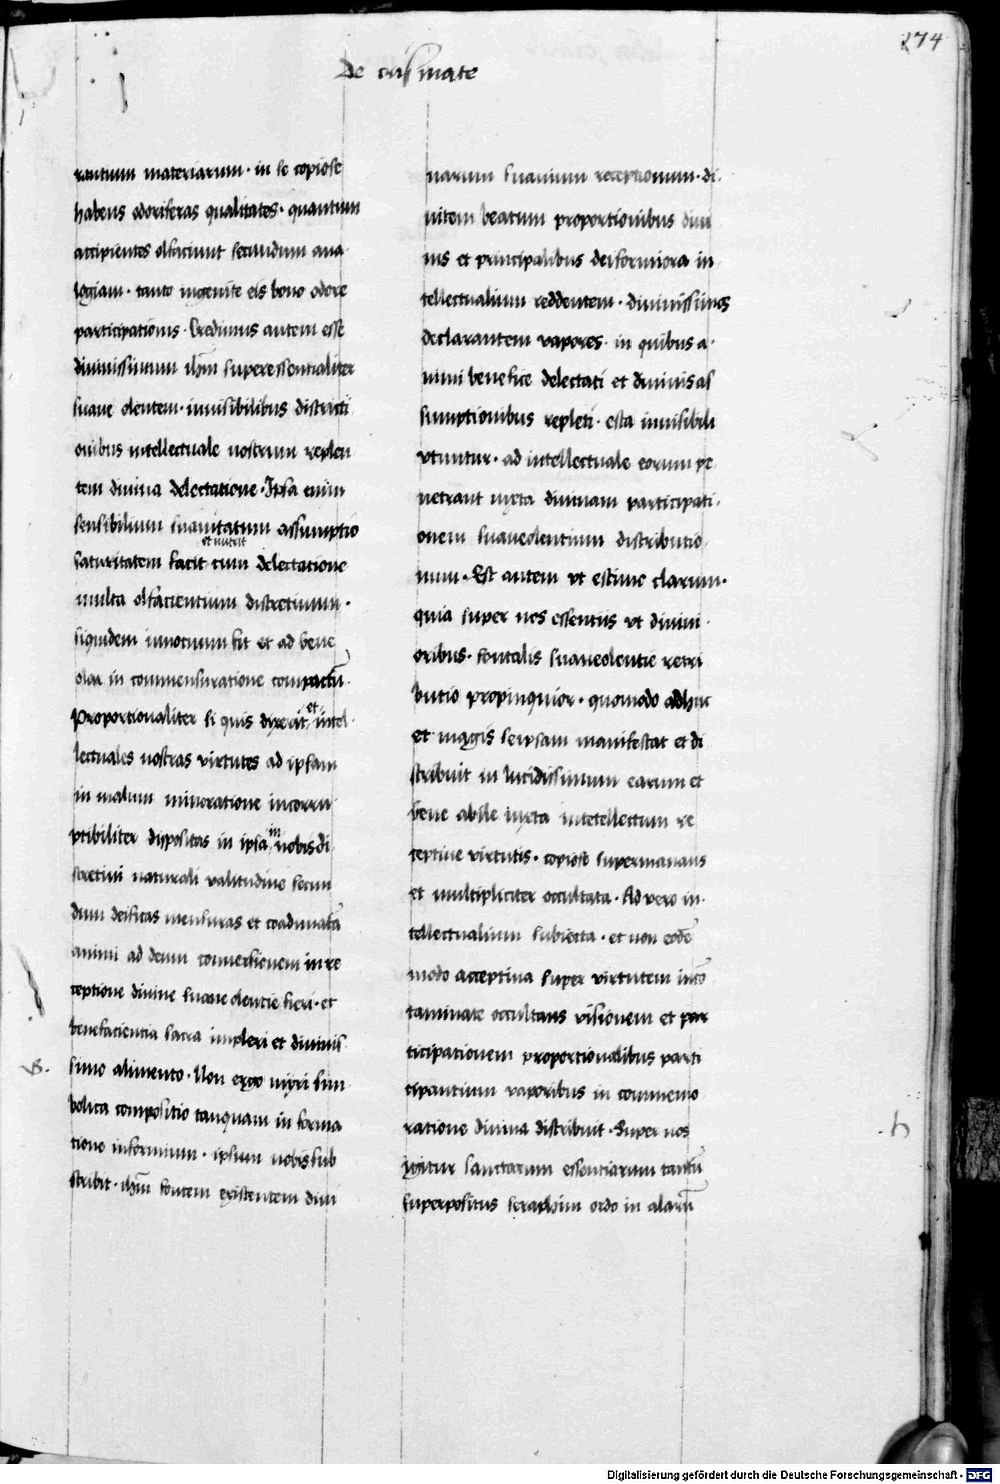 174
De crismate
rantium materiarum · in se copiose
habens odoriferas qualitates · quantum
accipientes olfaciunt secundum ana
logiam · tanto ingenite eis bono odore
participationis · Credimus autem esse
diuinissimum ihm superessentialiter
suaue olentem · inuisibilibus districti
onibus intellectuale nostrum replen
tem diuina delectatione · Ipsa enim
sensibilium suauitatum assumptio
et nutrit
saturitatem facit cum delectatione
multa olfacientium discretiuum ·
siquidem innocuum sit et ad bene
olar in commensuratione compactu
Proportionaliter si quis dixerit et intel
lectuales nostras virtutes ad ipsam
in malum minoratione incorru
ptibiliter dispositas in ipsa in nobis di
scretiui naturali valitudine secun
dum deificas mensuras et coadunata
animi ad deum conuersionem in re
ceptione diuine suaue olencie fieri · et
benefacientia sacra impleri et diuinis
B.
simo alimento · Non ergo myri sim
bolica compositio tanquam in forma
tione informium · ipsum nobis sub
scribit · ihm fontem existentem diui
narum suauium receptionum · di
uitem beatum proportionibus diui
nis et principalibus deiformiora in
tellectualium reddentem · diuinissimos
declarantem vapores · in quibus a
nimi benefice delectati et diuinis as
sumptionibus repleti · esca inuisibili
vtuntur · ad intellectuale eorum pe
netrant iuxta diuinam participati
onem suaueolentium distributio
num · Est autem vt estimo clarum ·
quia super nos essentiis vt diuini
oribus · fontalis suaueolentie retri
butio propinquior · quomodo adhuc
et magis seipsam manifestat et di
stribuit in lucidissimum earum et
bene abile iuxta intetellectum re
ceptiue virtutis · copiose supermanans
et multipliciter occultata · Ad vero in
tellectualium subiecta · et non eode
modo acceptiua super virtutem inco
taminate occultans visionem et par
ticipationem proportionalibus parti
cipantium vaporibus in commemo
ratione diuina distribuit · Super nos
h
igitur sanctarum essentiarum tantu
superpositus seraphim ordo in alarum
Digitalisierung gefördert durch die Deutsche Forschungsgemeinschaft - DFG